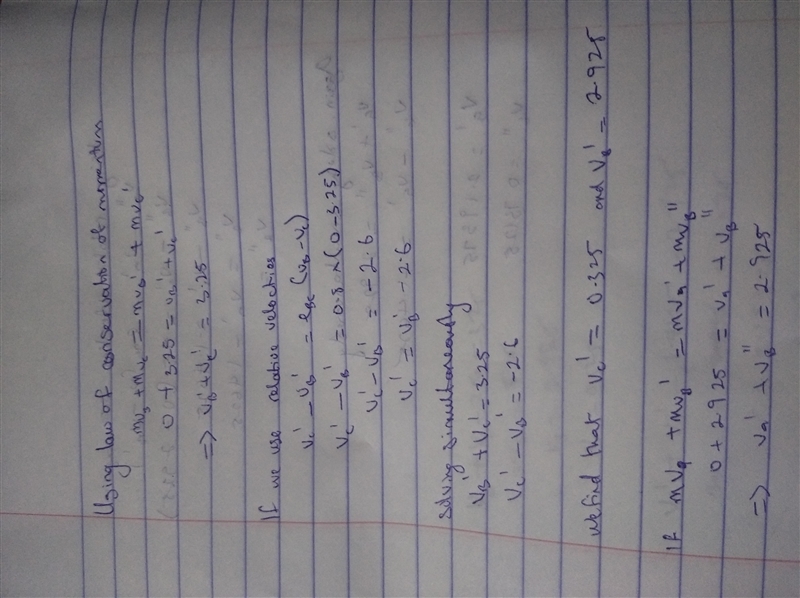 Using law of conservation of momentum
mv_B + mv_C = mv_B' + mv_C'
0 + 3.25 = v_B' + v_C'
=> v_B' + v_C' = 3.25
If we use relative velocities
v_C' - v_B' = e_BC (v_B - v_C)
v_C' - v_B' = 0.8 × (0 - 3.25)
v_C' - v_B' = -2.6
v_C' = v_B' - 2.6
Solving simultaneously
v_B' + v_C' = 3.25
v_C' - v_B' = -2.6
We find that v_C' = 0.325 and v_B' = 2.925
If mv_A + mv_B' = mv_A' + mv_B''
0 + 2.925 = v_A' + v_B''
=> v_A' + v_B'' = 2.925